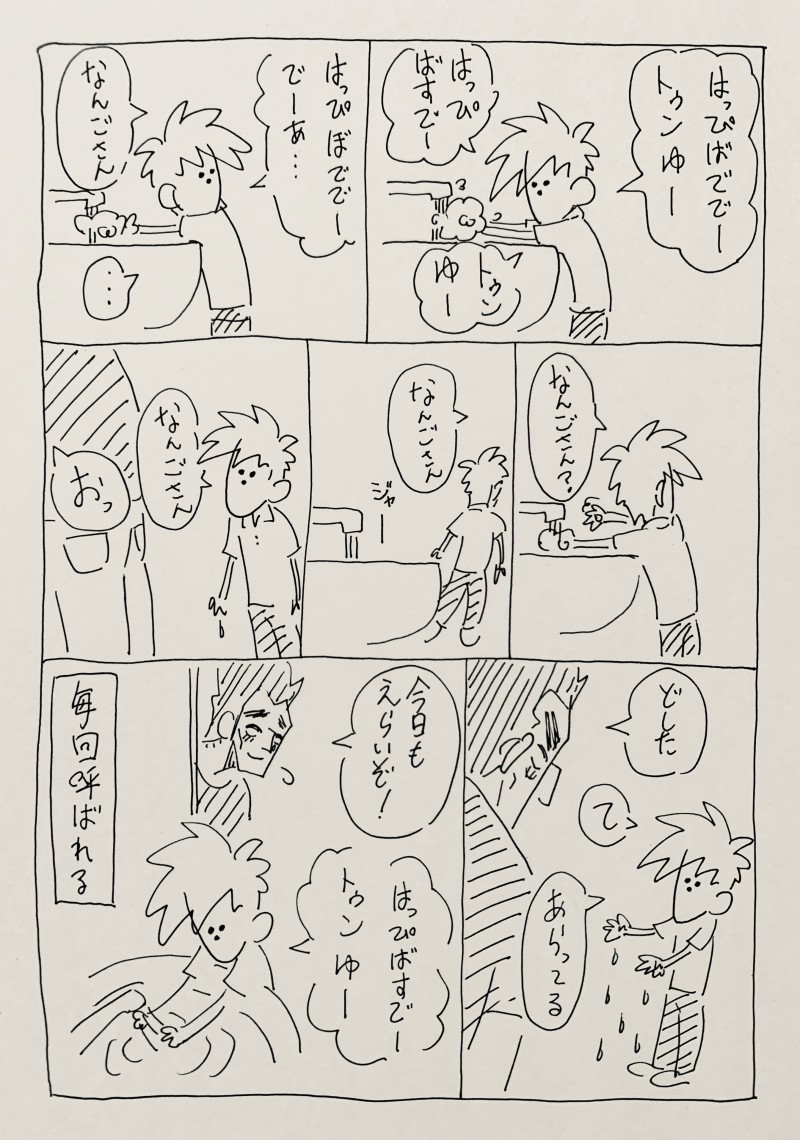 はっぴばででー
トゥンゆー
はっぴ
ばすでー
トゥン
ゆー
はっぴぼでで
でーあ…
なんごさん
…
なんごさん?
なんごさん
ジャー
なんごさん
おっ
どした
て
あらってる
今日も
えらいぞ!
はっぴばすでー
トゥンゆー
毎回呼ばれる